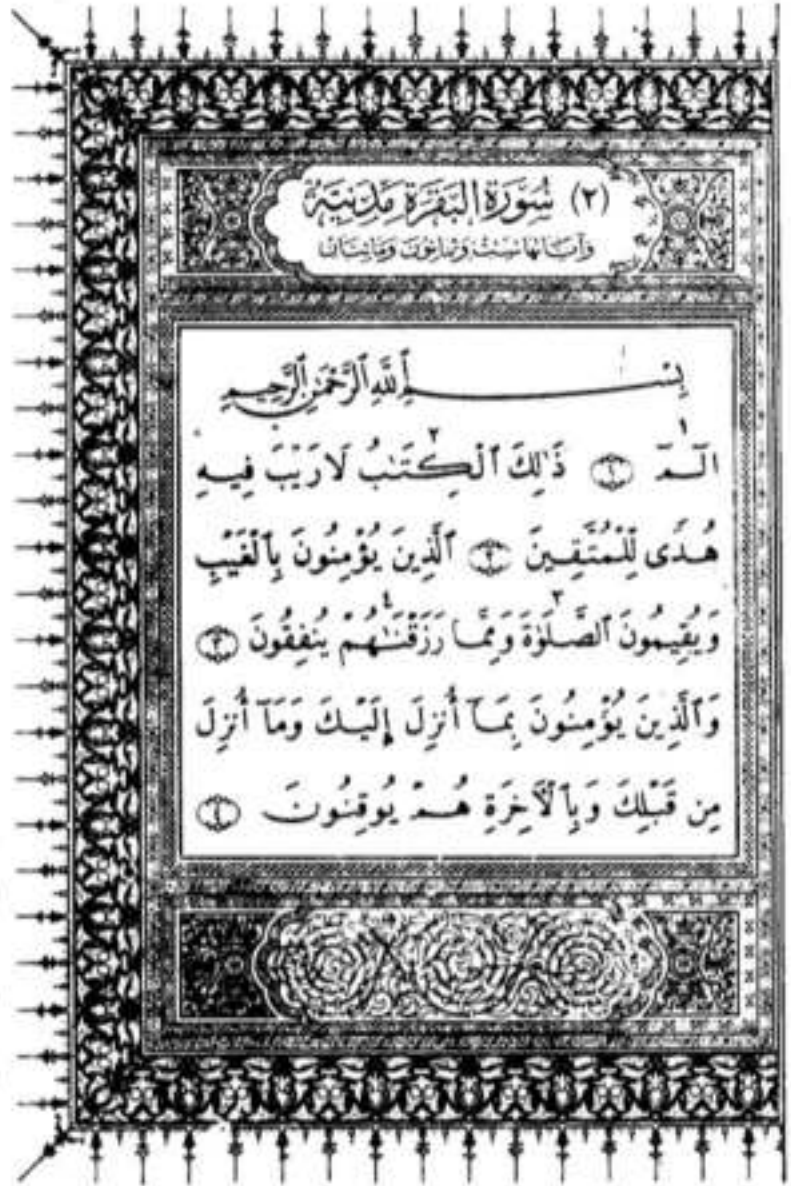 (٢) سُورَةُ البَقَرَةِ مَدَنِيَّة
وَآيَاتُهَا سِتٌّ وَثَمَانُونَ وَمِائَتَانِ
بِسْمِ ٱللَّهِ ٱلرَّحْمَٰنِ ٱلرَّحِيمِ
الٓمٓ ١ (١) ذَٰلِكَ ٱلْكِتَٰبُ ٢ لَا رَيْبَ فِيهِ
هُدًى لِّلْمُتَّقِينَ (٢) ٱلَّذِينَ يُؤْمِنُونَ بِٱلْغَيْبِ
وَيُقِيمُونَ ٱلصَّلَوٰةَ ٣ وَمِمَّا رَزَقْنَٰهُمْ ٤ يُنفِقُونَ (٣)
وَٱلَّذِينَ يُؤْمِنُونَ بِمَآ أُنزِلَ إِلَيْكَ وَمَآ أُنزِلَ
مِن قَبْلِكَ وَبِٱلْأَخِرَةِ هُمْ يُوقِنُونَ (٤)